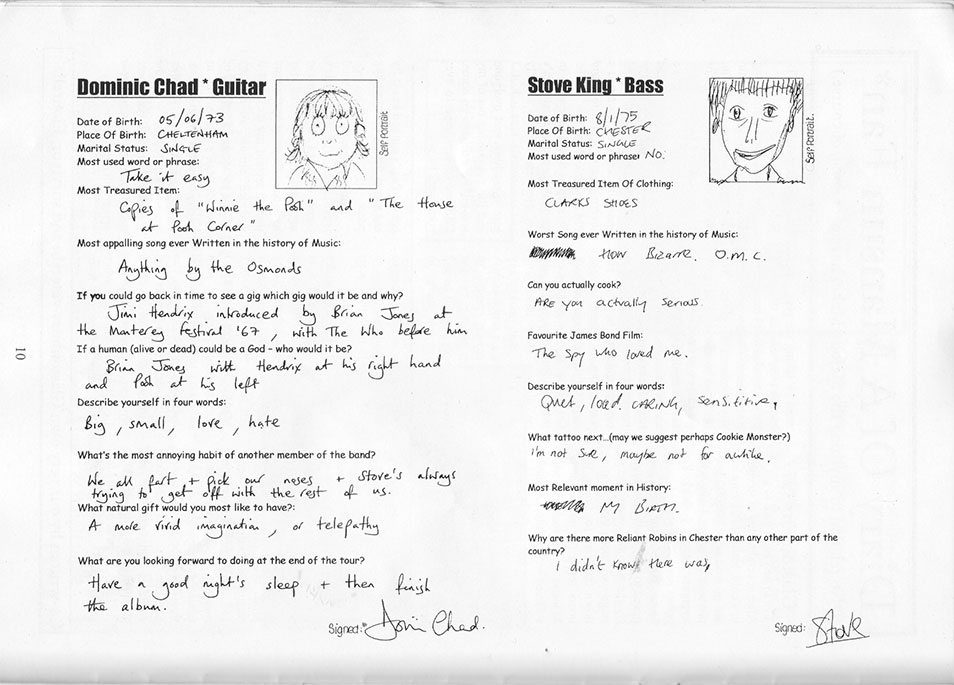 Dominic Chad * Guitar
Date of Birth: 05/06/73
Place Of Birth: CHELTENHAM
Marital Status: SINGLE
Most used word or phrase:
Take it easy
Most Treasured Item:
Copies of "Winnie the Pooh" and "The House
at Pooh Corner"
Most appalling song ever Written in the history of Music:
Anything by the Osmonds
If you could go back in time to see a gig which gig would it be and why?
Jimi Hendrix introduced by Brian Jones at
the Monterey Festival '67, with The Who before him
If a human (alive or dead) could be a God – who would it be?
Brian Jones with Hendrix at his right hand
and Pooh at his left
Describe yourself in four words:
Big, small, love, hate
What's the most annoying habit of another member of the band?
We all fart + pick our noses + Stove's always
trying to get off with the rest of us.
What natural gift would you most like to have?:
A more vivid imagination, or telepathy
What are you looking forward to doing at the end of the tour?
Have a good night's sleep + then finish
the album.
Signed: Domi Chad.
Self Portrait
10
Stove King * Bass
Date of Birth: 8/1/75
Place Of Birth: CHESTER
Marital Status: SINGLE
Most used word or phrase: NO.
Self Portrait.
Most Treasured Item Of Clothing:
CLARKS SHOES
Worst Song ever Written in the history of Music:
How Bizarre. O.M.C.
Can you actually cook?
ARE you actually serious.
Favourite James Bond Film:
The Spy who loved me.
Describe yourself in four words:
Quet, loud. CARING, Sensititive,
What tattoo next...(may we suggest perhaps Cookie Monster?)
i'm not sure, maybe not for awhile.
Most Relevant moment in History:
My BIRTH.
Why are there more Reliant Robins in Chester than any other part of the
country?
I didn't know there was,
Signed: Stove